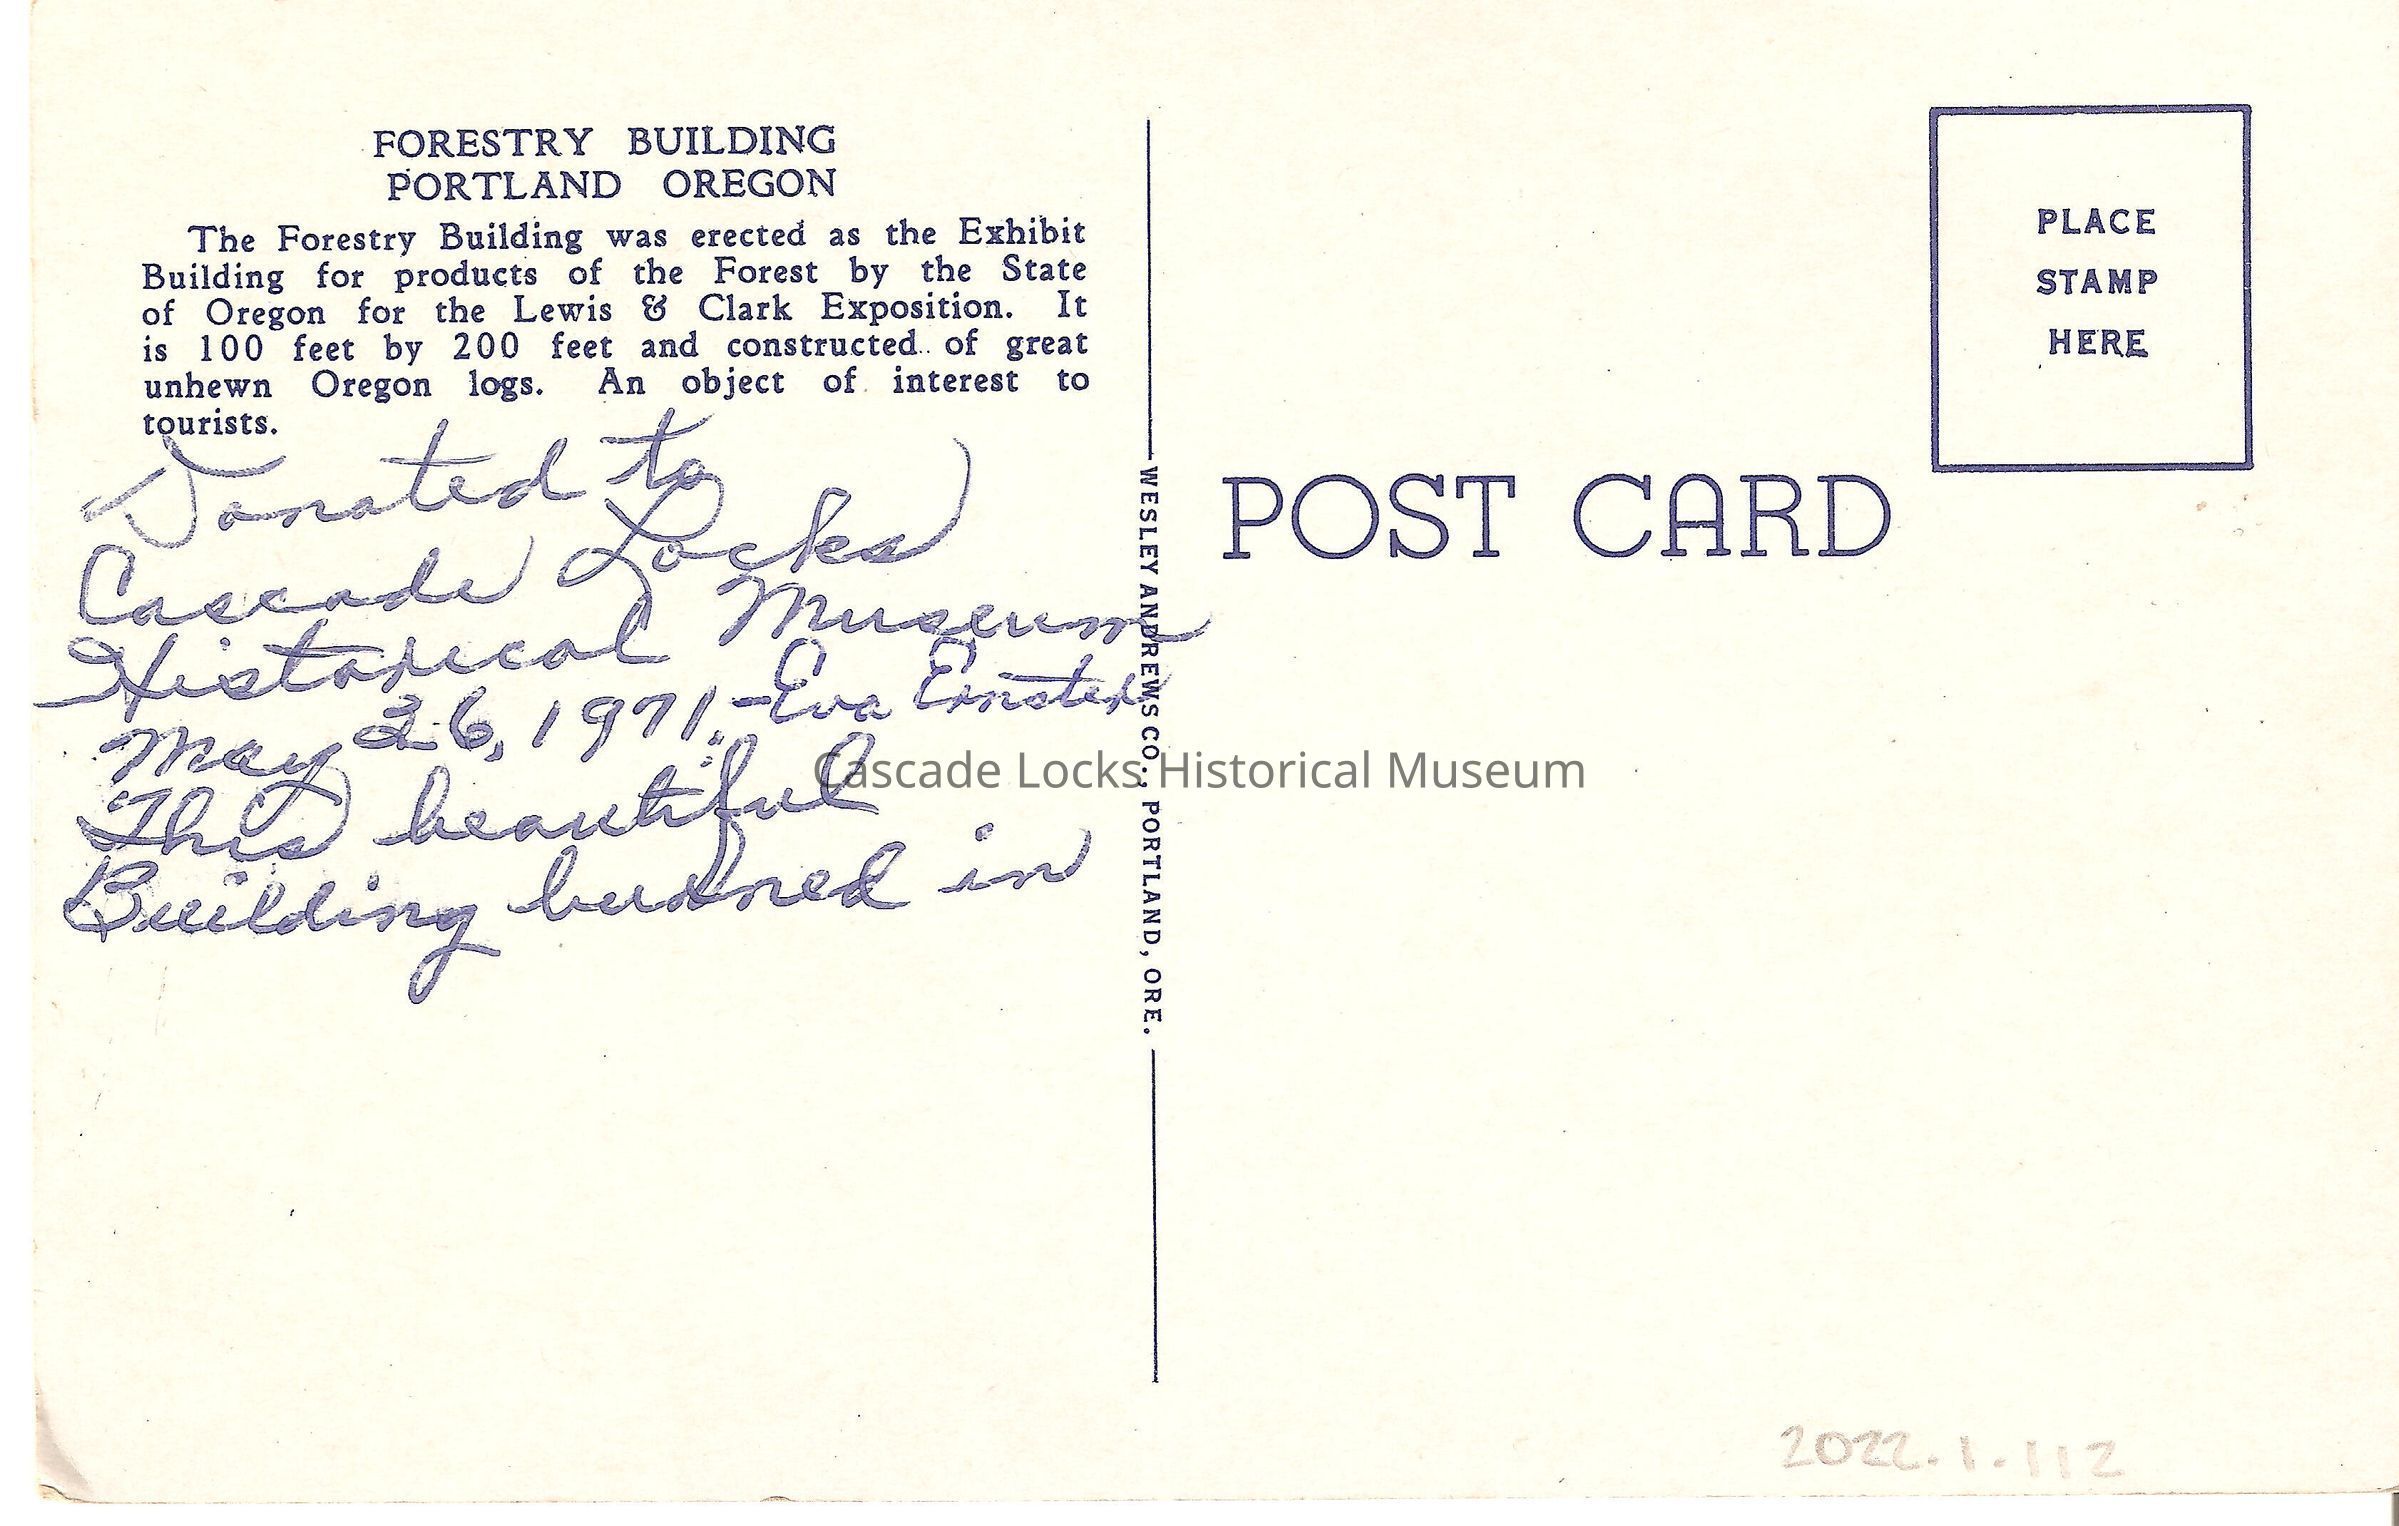 FORESTRY BUILDING
PORTLAND OREGON
The Forestry Building was erected as the Exhibit
Building for products of the Forest by the State
of Oregon for the Lewis & Clark Exposition. It
is 100 feet by 200 feet and constructed of great
unhewn Oregon logs. An object of interest to
tourists.
Donated to
Cascade Locks
Historical Museum
May 26, 1971, - Eva
This beautiful
Building burned in
WESLEY ANDREWS CO., PORTLAND, ORE.
PLACE
STAMP
HERE
POST CARD
Cascade Locks Historical Museum
2022.1.112